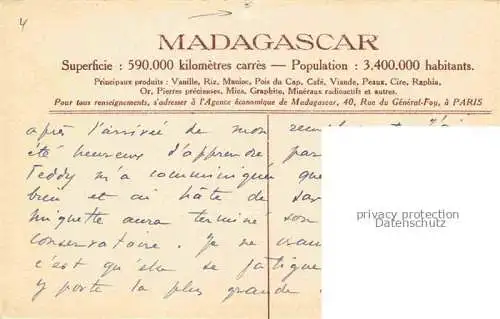 4
MADAGASCAR
Superficie : 590.000 kilomètres carrés — Population : 3.400.000 habitants.
Principaux produits : Vanille, Riz, Manioc, Pois du Cap, Café, Viande, Peaux, Cire, Raphia,
Or, Pierres précieuses, Mica, Graphite, Minéraux radioactifs et autres.
Pour tous renseignements, s'adresser à l'Agence économique de Madagascar, 40, Rue du Général-Foy, à PARIS
après l'arrivée de mon
été heureux d'apprendre par
Teddy m'a communiqué que
bien et ai hâte de
miquette aura terminé son
conservatoire. Je ne
c'est qu'elle se fatigue
y porte la plus grande
privacy protection
Datenschutz